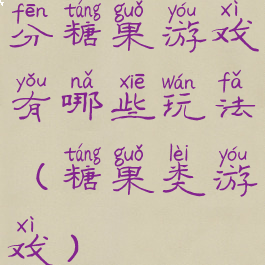 fēn táng guǒ yóu xì
分糖果游戏
yǒu nǎ xiē wán fǎ
有哪些玩法
táng guǒ lèi yóu
（糖果类游
xì
戏）